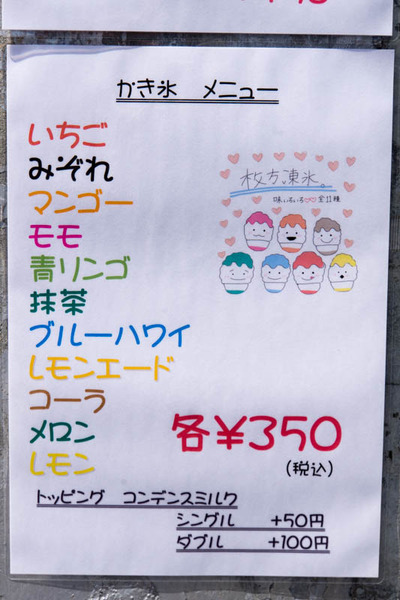 かき氷 メニュー
いちご
みぞれ
マンゴー
モモ
青リンゴ
抹茶
ブルーハワイ
レモンエード
コーラ
メロン
レモン
枚方凍氷。
味いろいろ♡♡全11種
各¥350
(税込)
トッピング コンデンスミルク
シングル +50円
ダブル +100円